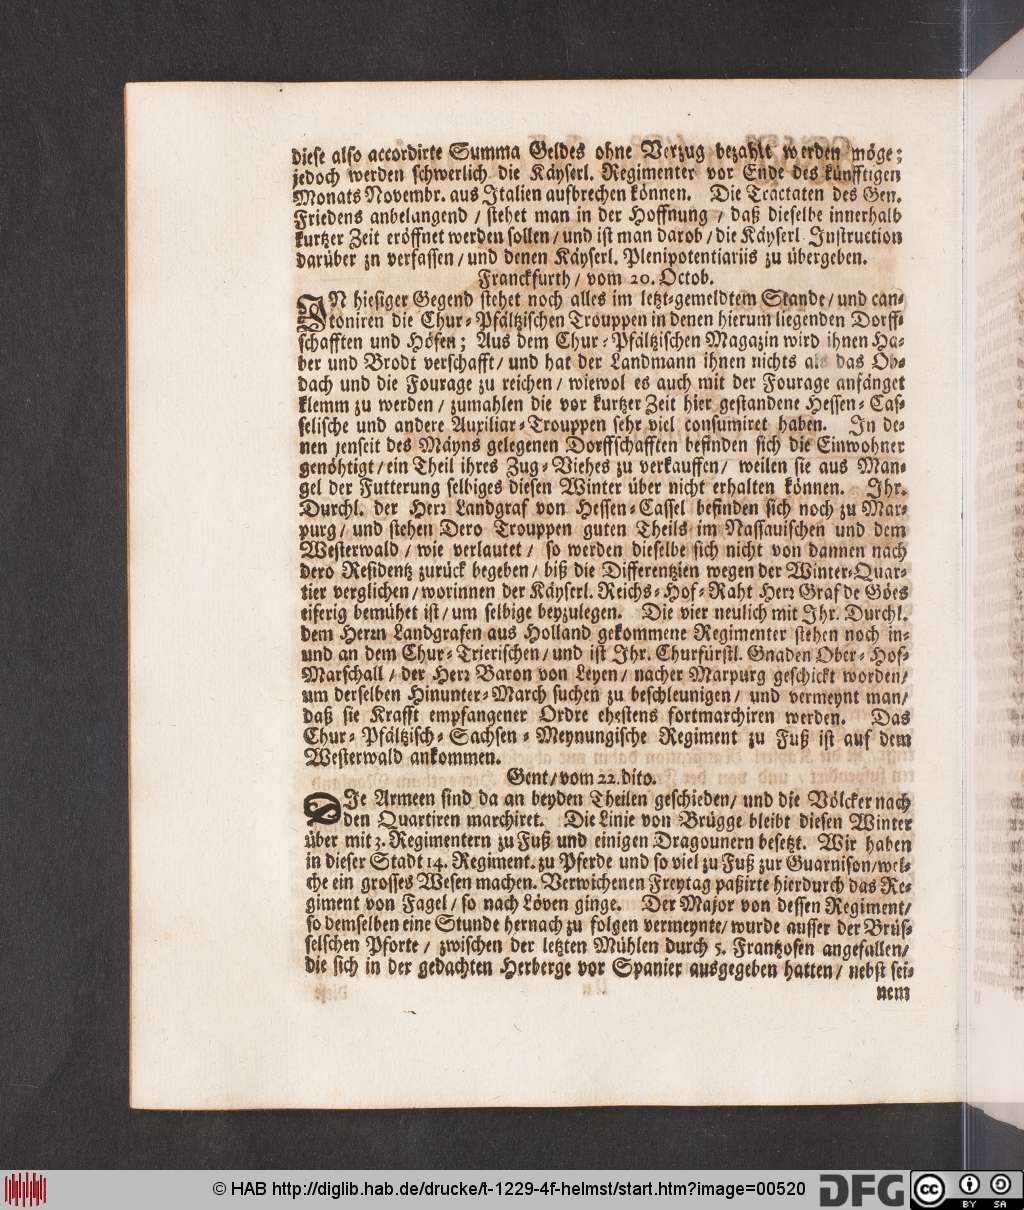 diese also accordirte Summa Geldes ohne Verzug bezahlt werden möge;
jedoch werden schwerlich die Käyserl. Regimenter vor Ende des künfftigen
Monats Novembr. aus Italien aufbrechen können. Die Tractaten des Gen.
Friedens anbelangend / stehet man in der Hoffnung / daß dieselbe innerhalb
kurtzer Zeit eröffnet werden sollen / und ist man darob / die Käyserl. Instruction
darüber zn verfassen / und denen Käyserl. Plenipotentiariis zu übergeben.
Franckfurth / vom 20. Octob.
IN hiesiger Gegend stehet noch alles im letzt-gemeldtem Stande / und can-
toniren die Chur-Pfältzischen Trouppen in denen hierum liegenden Dorff-
schafften und Höfen; Aus dem Chur-Pfältzischen Magazin wird ihnen Ha-
ber und Brodt verschafft / und hat der Landmann ihnen nichts als das Ob-
dach und die Fourage zu reichen / wiewol es auch mit der Fourage anfänget
klemm zu werden / zumahlen die vor kurtzer Zeit hier gestandene Hessen-Cas-
selische und andere Auxiliar-Trouppen sehr viel consumiret haben. In de-
nen jenseit des Mäyns gelegenen Dorffschafften befinden sich die Einwohner
genöhtigt / ein Theil ihres Zug-Viehes zu verkauffen / weilen sie aus Man-
gel der Futterung selbiges diesen Winter über nicht erhalten können. Ihr.
Durchl. der Herr Landgraf von Hessen-Cassel befinden sich noch zu Mar-
purg / und stehen Dero Trouppen guten Theils im Nassauischen und dem
Westerwald / wie verlautet / so werden dieselbe sich nicht von dannen nach
dero Residentz zurück begeben / biß die Differentzien wegen der Winter-Quar-
tier verglichen / worinnen der Käyserl. Reichs-Hof-Raht Herr Graf de Göes
eiferig bemühet ist / um selbige beyzulegen. Die vier neulich mit Ihr. Durchl.
dem Herrn Landgrafen aus Holland gekommene Regimenter stehen noch in-
und an dem Chur-Trierischen / und ist Ihr. Churfürstl. Gnaden Ober-Hof-
Marschall / der Herr Baron von Leyen / nacher Marpurg geschickt worden /
um derselben Hinunter-March suchen zu beschleunigen / und vermeynt man /
daß sie Krafft empfangener Ordre ehestens fortmarchiren werden. Das
Chur-Pfältzisch-Sachsen-Meynungische Regiment zu Fuß ist auf dem
Westerwald ankommen.
Gent / vom 22. dito.
DIe Armeen sind da an beyden Theilen geschieden / und die Völcker nach
den Quartiren marchiret. Die Linie von Brügge bleibt diesen Winter
über mit 3. Regimentern zu Fuß und einigen Dragounern besetzt. Wir haben
in dieser Stadt 14. Regiment. zu Pferde und so viel zu Fuß zur Guarnison / wel-
che ein grosses Wesen machen. Verwichenen Freytag paßirte hierdurch das Re-
giment von Fagel / so nach Löven ginge. Der Major von dessen Regiment /
so demselben eine Stunde hernach zu folgen vermeynte / wurde ausser der Brüs-
selschen Pforte / zwischen der letzten Mühlen durch 5. Frantzosen angefallen /
die sich in der gedachten Herberge vor Spanier ausgegeben hatten / nebst sei-
nem
© HAB http://diglib.hab.de/drucke/t-1229-4f-helmst/start.htm?image=00520
DFG
cc
BY SA